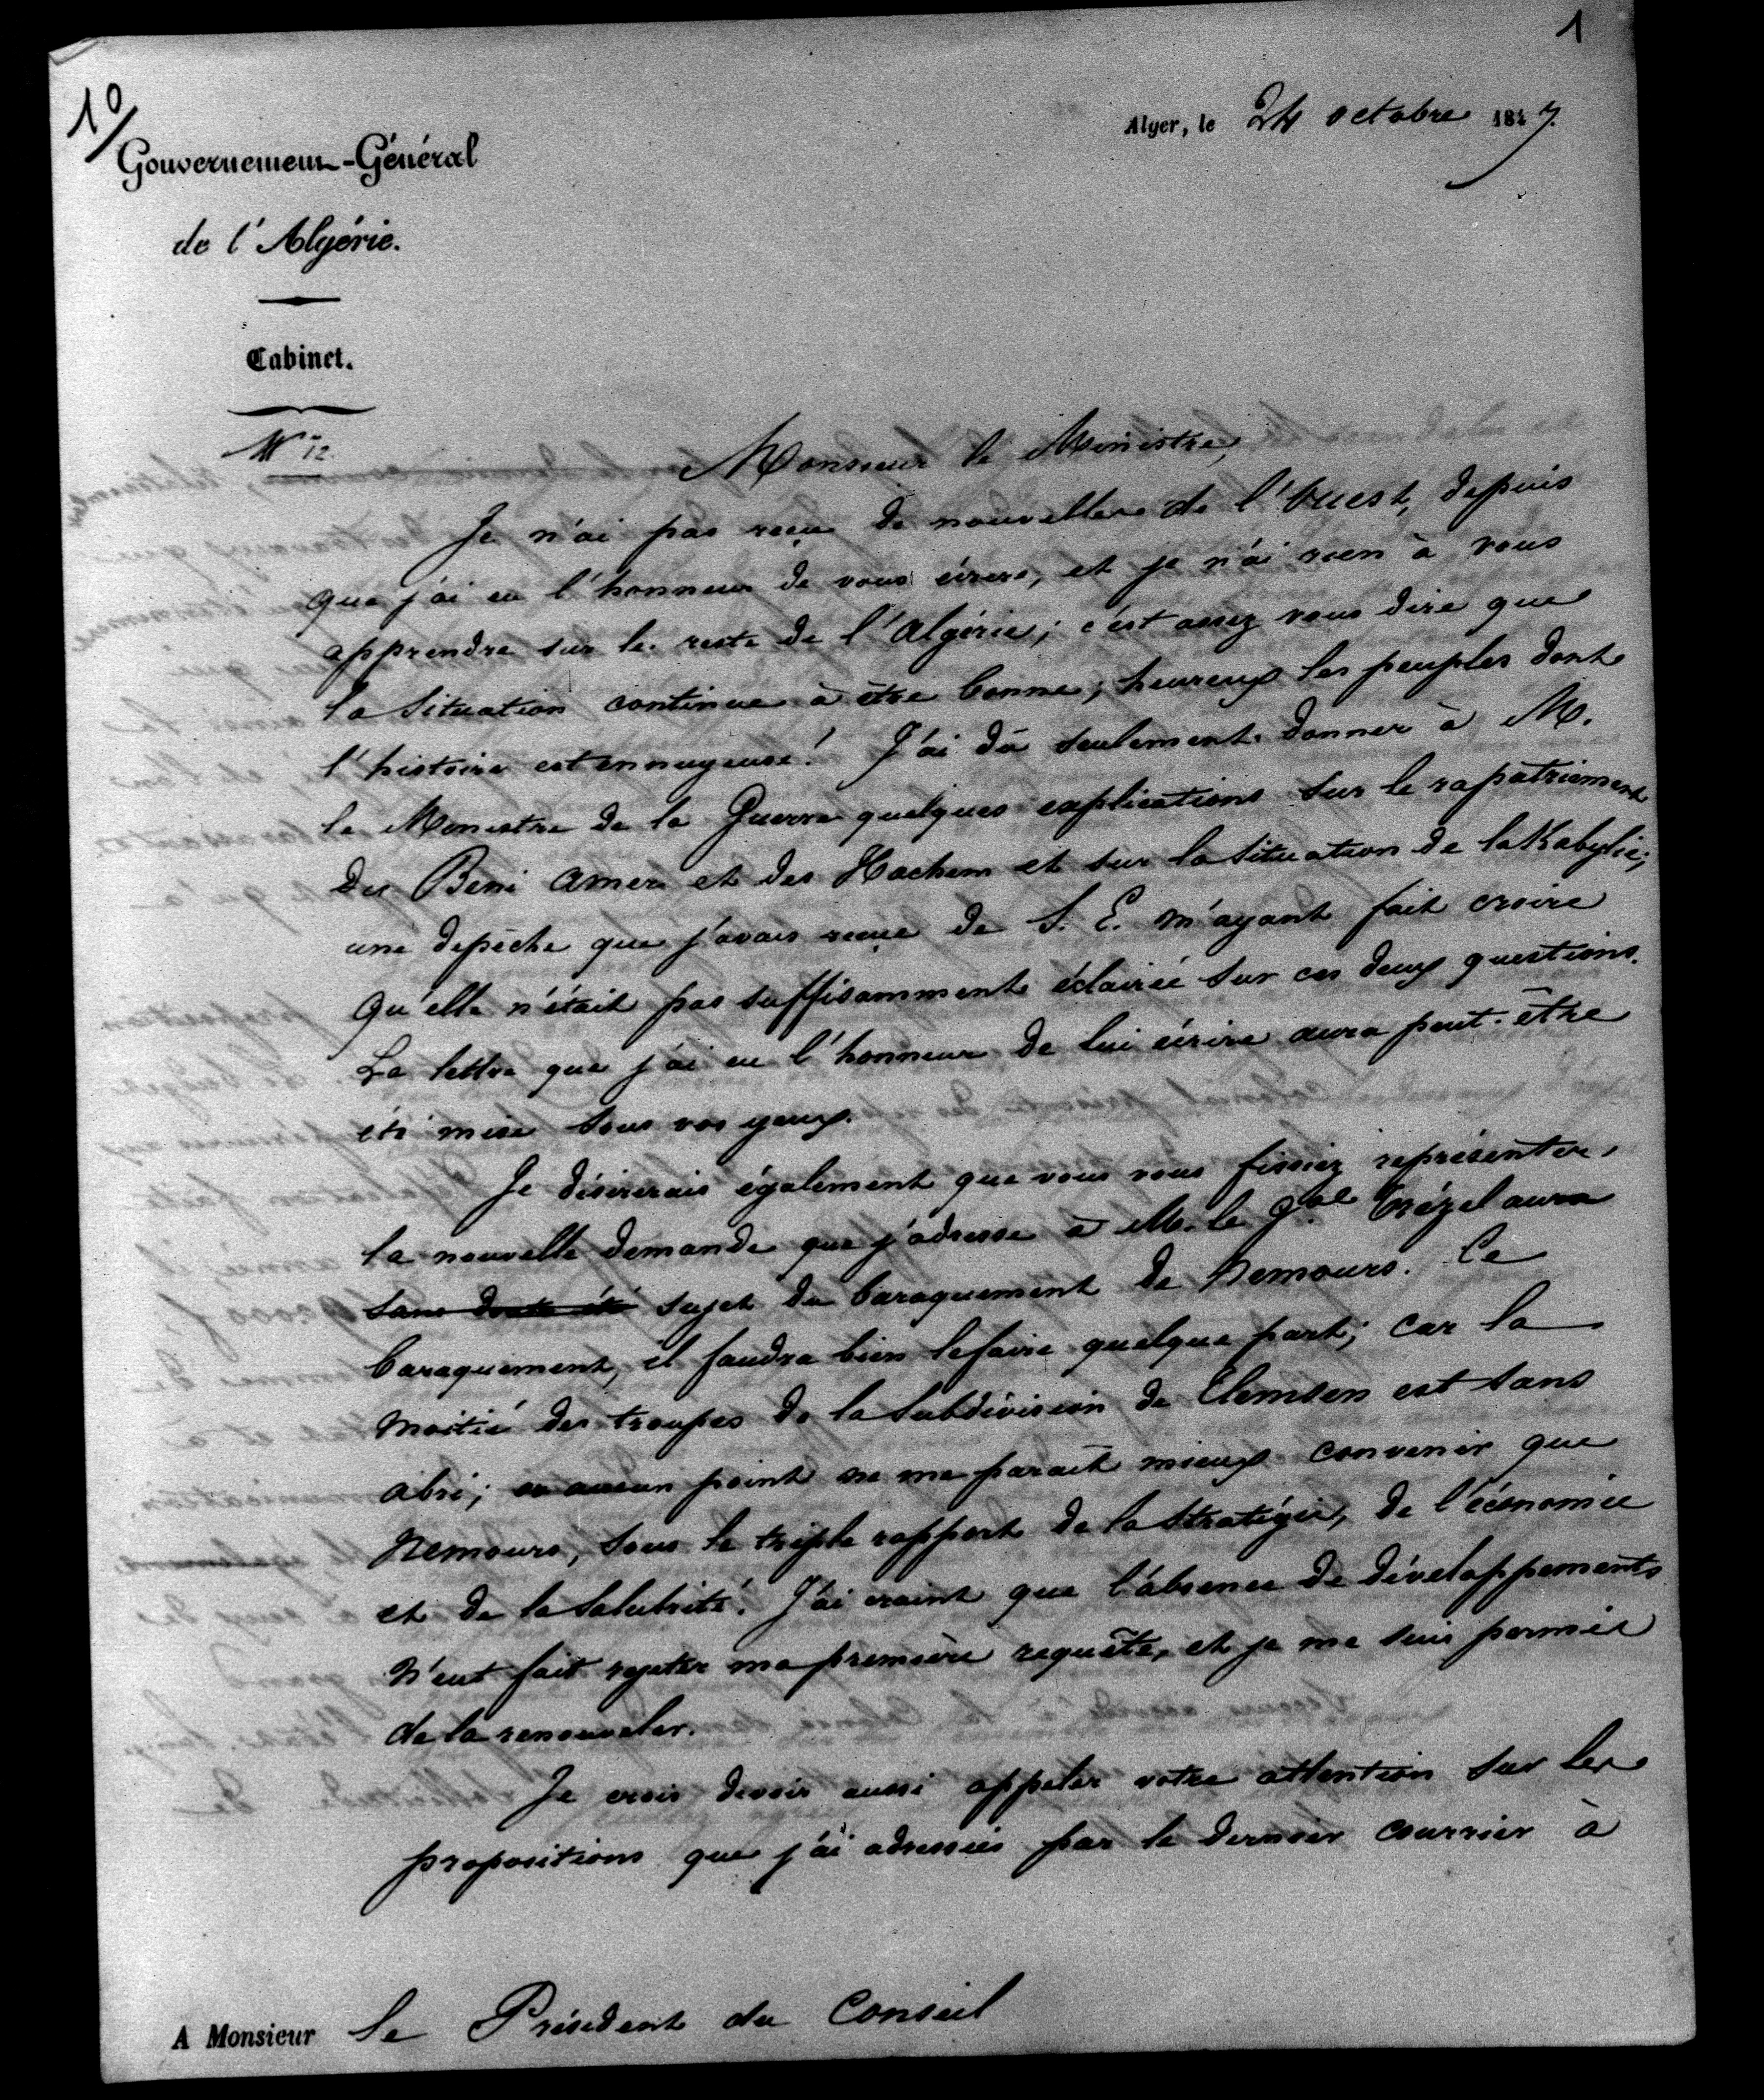 1
10/
Alger, le 24 octobre 1847.
Gouvernement-Général
de l'Algérie.
Cabinet.
N° 12.
Monsieur le Ministre,
Je n'ai pas reçu de nouvelles de l'Ouest, depuis
que j'ai eu l'honneur de vous écrire, et je n'ai rien à vous
apprendre sur le reste de l'Algérie; c'est assez vous dire que
la situation continue à être bonne; heureux les peuples dont
l'histoire est ennuyeuse! J'ai dû seulement donner à M.
le Ministre de la Guerre quelques explications sur le rapatriement
des Beni Amer et des Hachem et sur la situation de la Kabylie;
une dépêche que j'avais reçue de S. E. m'ayant fait croire
qu'elle n'était pas suffisamment éclairée sur ces deux questions.
La lettre que j'ai eu l'honneur de lui écrire aura peut-être
été mise sous vos yeux.
Je désirerais également que vous vous fissiez représenter
la nouvelle demande que j'adresse à M. le Gal Trézel aura
sans doute été sujet du baraquement de Nemours. Ce
baraquement, il faudra bien le faire quelque part; car la
moitié des troupes de la subdivision de Tlemsen est sans
abri; aucun point ne me paraît mieux convenir que
Nemours, sous le triple rapport de la stratégie, de l'économie
et de la salubrité. J'ai craint que l'absence de développements
n'eut fait rejeter ma première requête, et je me suis permis
de la renouveler.
Je crois devoir aussi appeler votre attention sur les
propositions que j'ai adressées par le dernier courrier à
A Monsieur le Président du Conseil